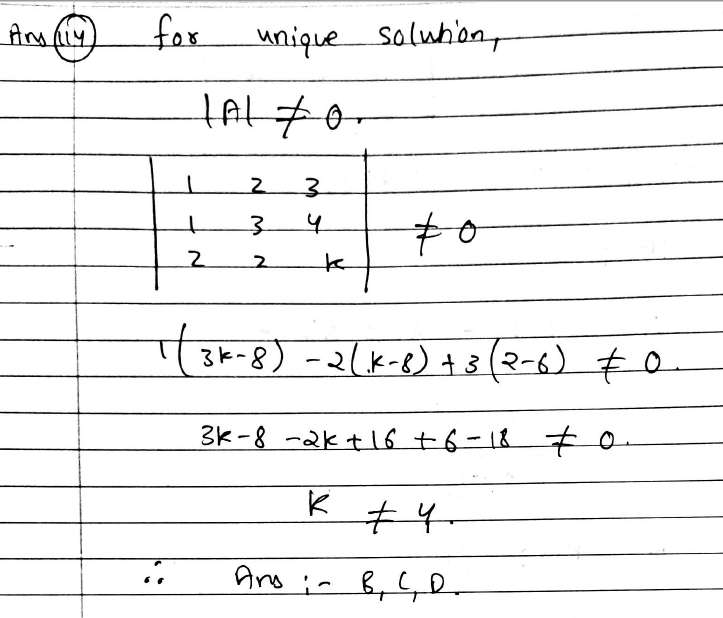 Ans (114) for unique solution,
|A| ≠ 0.
| 1 2 3 |
| 1 3 4 | ≠ 0
| 2 2 k |
1(3k-8) -2(k-8) +3(2-6) ≠ 0.
3k-8 -2k +16 +6-18 ≠ 0.
k ≠ 4.
∴ Ans :- B, C, D.